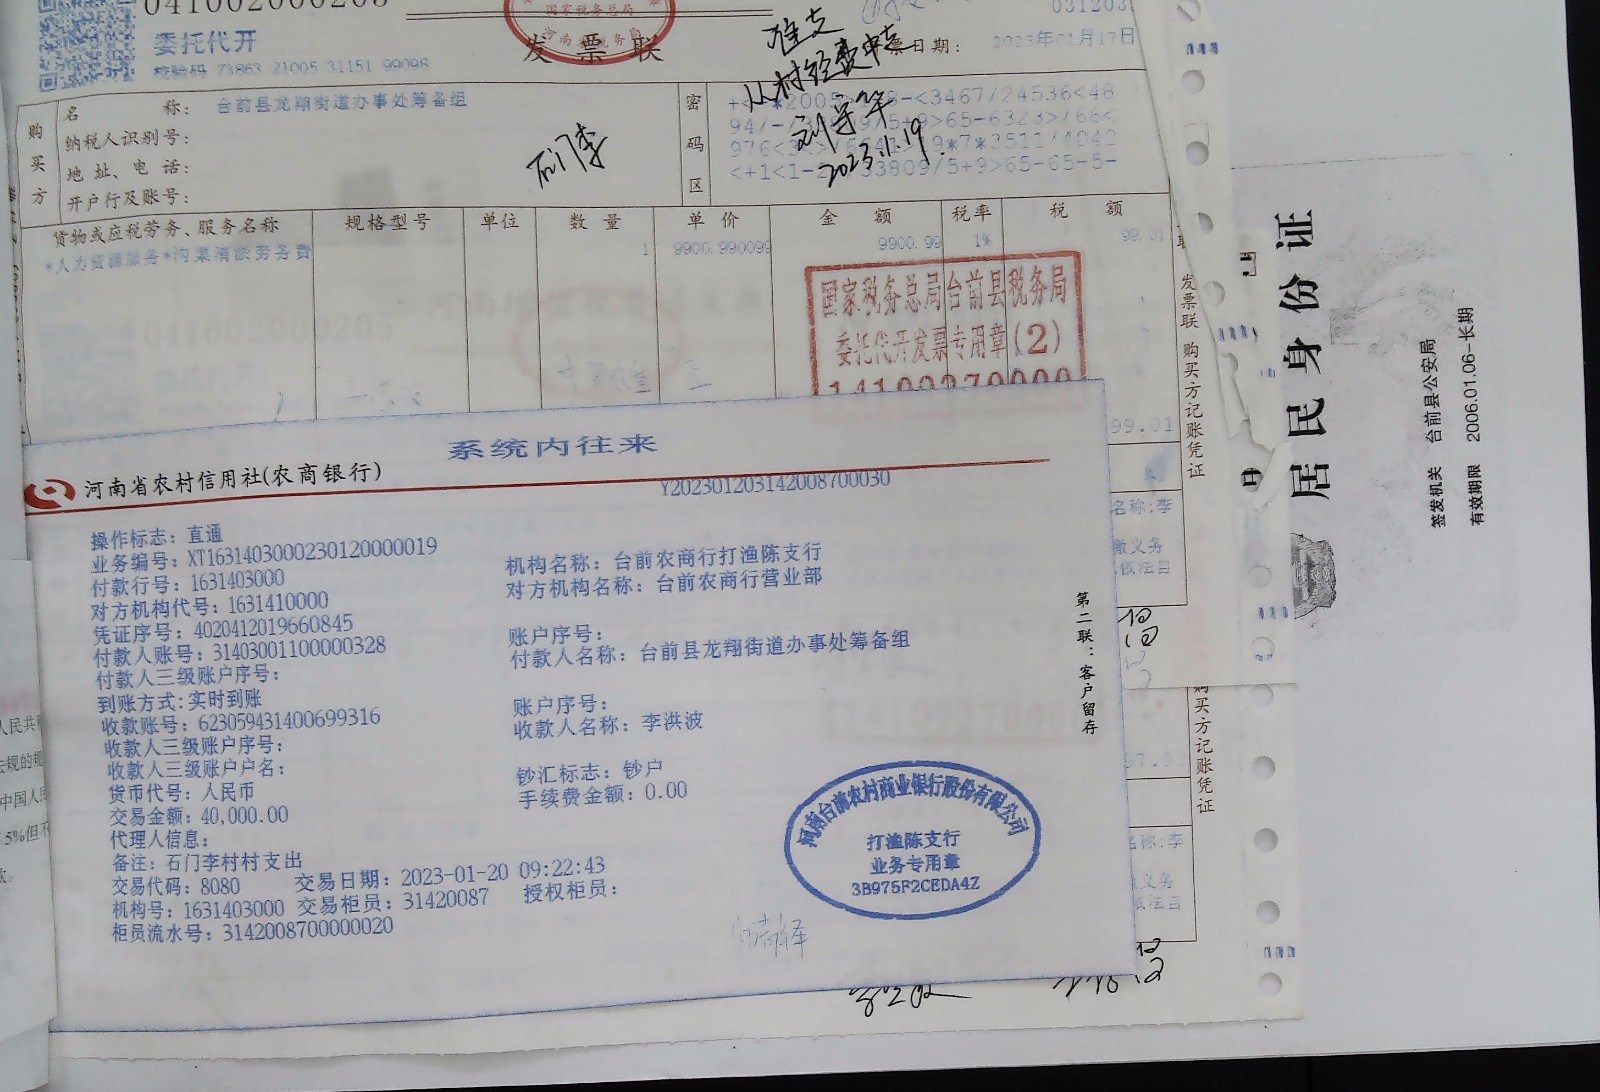 委托代开
校验码 73863 21005 31151 99098
国家税务总局
发票联
2023年01月17日
准支
从村经费中支
刘守华
2023.1.19.
购买方
名称：台前县龙翔街道办事处筹备组
纳税人识别号：
地址、电话：
开户行及账号：
石门李
密码区
货物或应税劳务、服务名称 规格型号 单位 数量 单价 金额 税率 税额
*人力资源服务*沟渠清淤劳务费 1 9900.990099 9900.99 1% 99.01
国家税务总局台前县税务局
委托代开发票专用章(2)
发票联 购买方记账凭证
99.01
名称:李
系统内往来
河南省农村信用社(农商银行)
Y202301203142008700030
操作标志：直通
业务编号：XT1631403000230120000019
机构名称：台前农商行打渔陈支行
付款行号：1631403000
对方机构名称：台前农商行营业部
对方机构代号：1631410000
凭证序号：4020412019660845
账户序号：
付款人账号：31403001100000328
付款人名称：台前县龙翔街道办事处筹备组
付款人三级账户序号：
到账方式:实时到账
账户序号：
收款账号：623059431400699316
收款人名称：李洪波
收款人三级账户序号：
收款人三级账户户名：
钞汇标志：钞户
货币代号：人民币
手续费金额：0.00
交易金额：40,000.00
代理人信息：
备注：石门李村村支出
交易代码：8080 交易日期：2023-01-20 09:22:43
机构号：1631403000 交易柜员：31420087 授权柜员：
柜员流水号：3142008700000020
第二联：客户留存
河南台前农村商业银行股份有限公司
打渔陈支行
业务专用章
3B975F2CEDA4Z
购买方记账凭证
居民身份证
签发机关 台前县公安局
有效期限 2006.01.06-长期